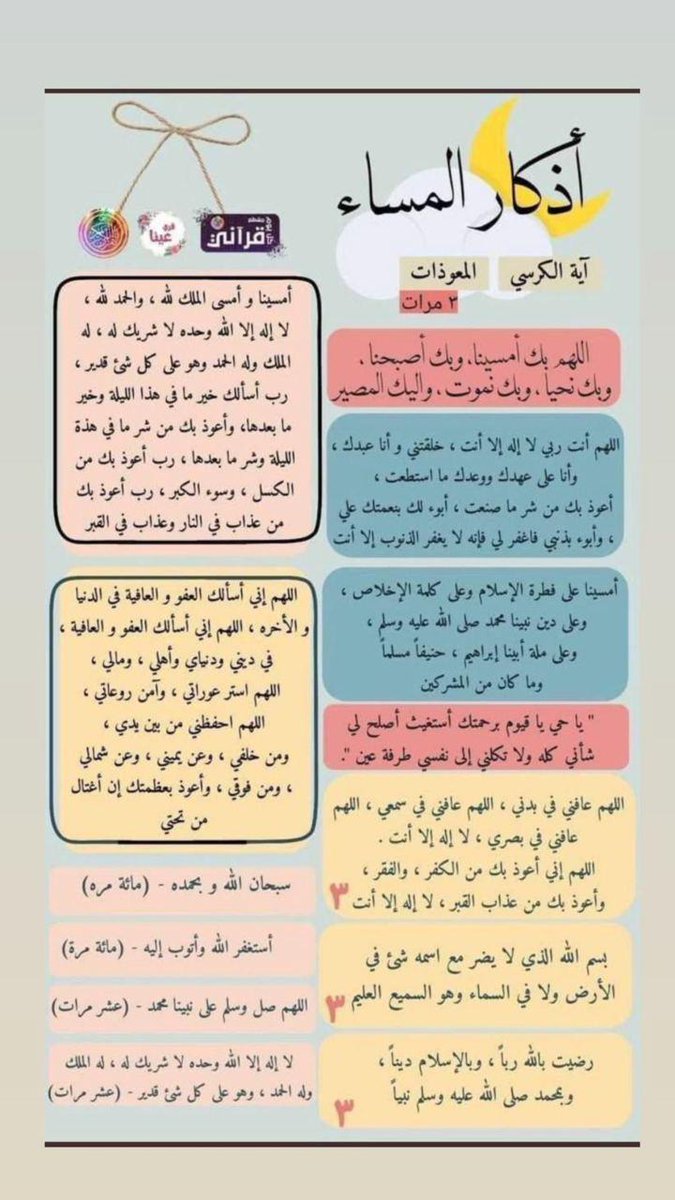 أذكار المساء
آية الكرسي
المعوذات
٣ مرات
اللهم بك أمسينا، وبك أصبحنا ،
وبك نحيا ، وبك نموت ، وإليك المصير
اللهم أنت ربي لا إله إلا أنت ، خلقتني و أنا عبدك ،
وأنا على عهدك ووعدك ما استطعت ،
أعوذ بك من شر ما صنعت ، أبوء لك بنعمتك علي
، وأبوء بذنبي فاغفر لي فإنه لا يغفر الذنوب إلا أنت
أمسينا على فطرة الإسلام وعلى كلمة الإخلاص ،
وعلى دين نبينا محمد صلى الله عليه وسلم ،
وعلى ملة أبينا إبراهيم ، حنيفاً مسلماً
وما كان من المشركين
" يا حي يا قيوم برحمتك أستغيث أصلح لي
شأني كله ولا تكلني إلى نفسي طرفة عين ".
اللهم عافني في بدني ، اللهم عافني في سمعي ، اللهم
عافني في بصري ، لا إله إلا أنت .
اللهم إني أعوذ بك من الكفر ، والفقر ،
وأعوذ بك من عذاب القبر ، لا إله إلا أنت
٣
بسم الله الذي لا يضر مع اسمه شئ في
الأرض ولا في السماء وهو السميع العليم
٣
رضيت بالله رباً ، وبالإسلام ديناً ،
وبمحمد صلى الله عليه وسلم نبياً
٣
قرآني
أمسينا و أمسى الملك لله ، والحمد لله ،
لا إله إلا الله وحده لا شريك له ، له
الملك وله الحمد وهو على كل شئ قدير ،
رب أسألك خير ما في هذا الليلة وخير
ما بعدها، وأعوذ بك من شر ما في هذة
الليلة وشر ما بعدها ، رب أعوذ بك من
الكسل ، وسوء الكبر ، رب أعوذ بك
من عذاب في النار وعذاب في القبر
اللهم إني أسألك العفو و العافية في الدنيا
و الأخره ، اللهم إني أسألك العفو و العافية ،
في ديني ودنياي وأهلي ، ومالي ،
اللهم استر عوراتي ، وآمن روعاتي ،
اللهم احفظني من بين يدي ،
ومن خلفي ، وعن يميني ، وعن شمالي
، ومن فوقي ، وأعوذ بعظمتك إن أغتال
من تحتي
سبحان الله و بحمده - (مائة مره)
أستغفر الله وأتوب إليه - (مائة مرة)
اللهم صل وسلم على نبينا محمد - (عشر مرات)
لا إله إلا الله وحده لا شريك له ، له الملك
وله الحمد ، وهو على كل شئ قدير - (عشر مرات)